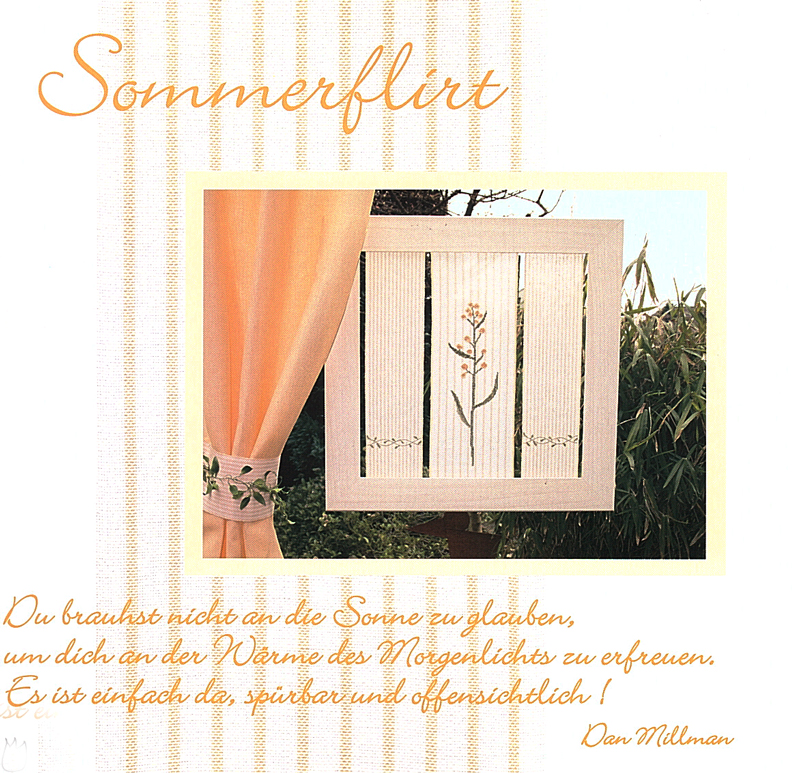 Sommerflirt
Du brauhst nicht an die Sonne zu glauben,
um dich an der Wärme des Morgenlichts zu erfreuen.
Es ist einfach da, spürbar und offensichtlich !
Dan Millman